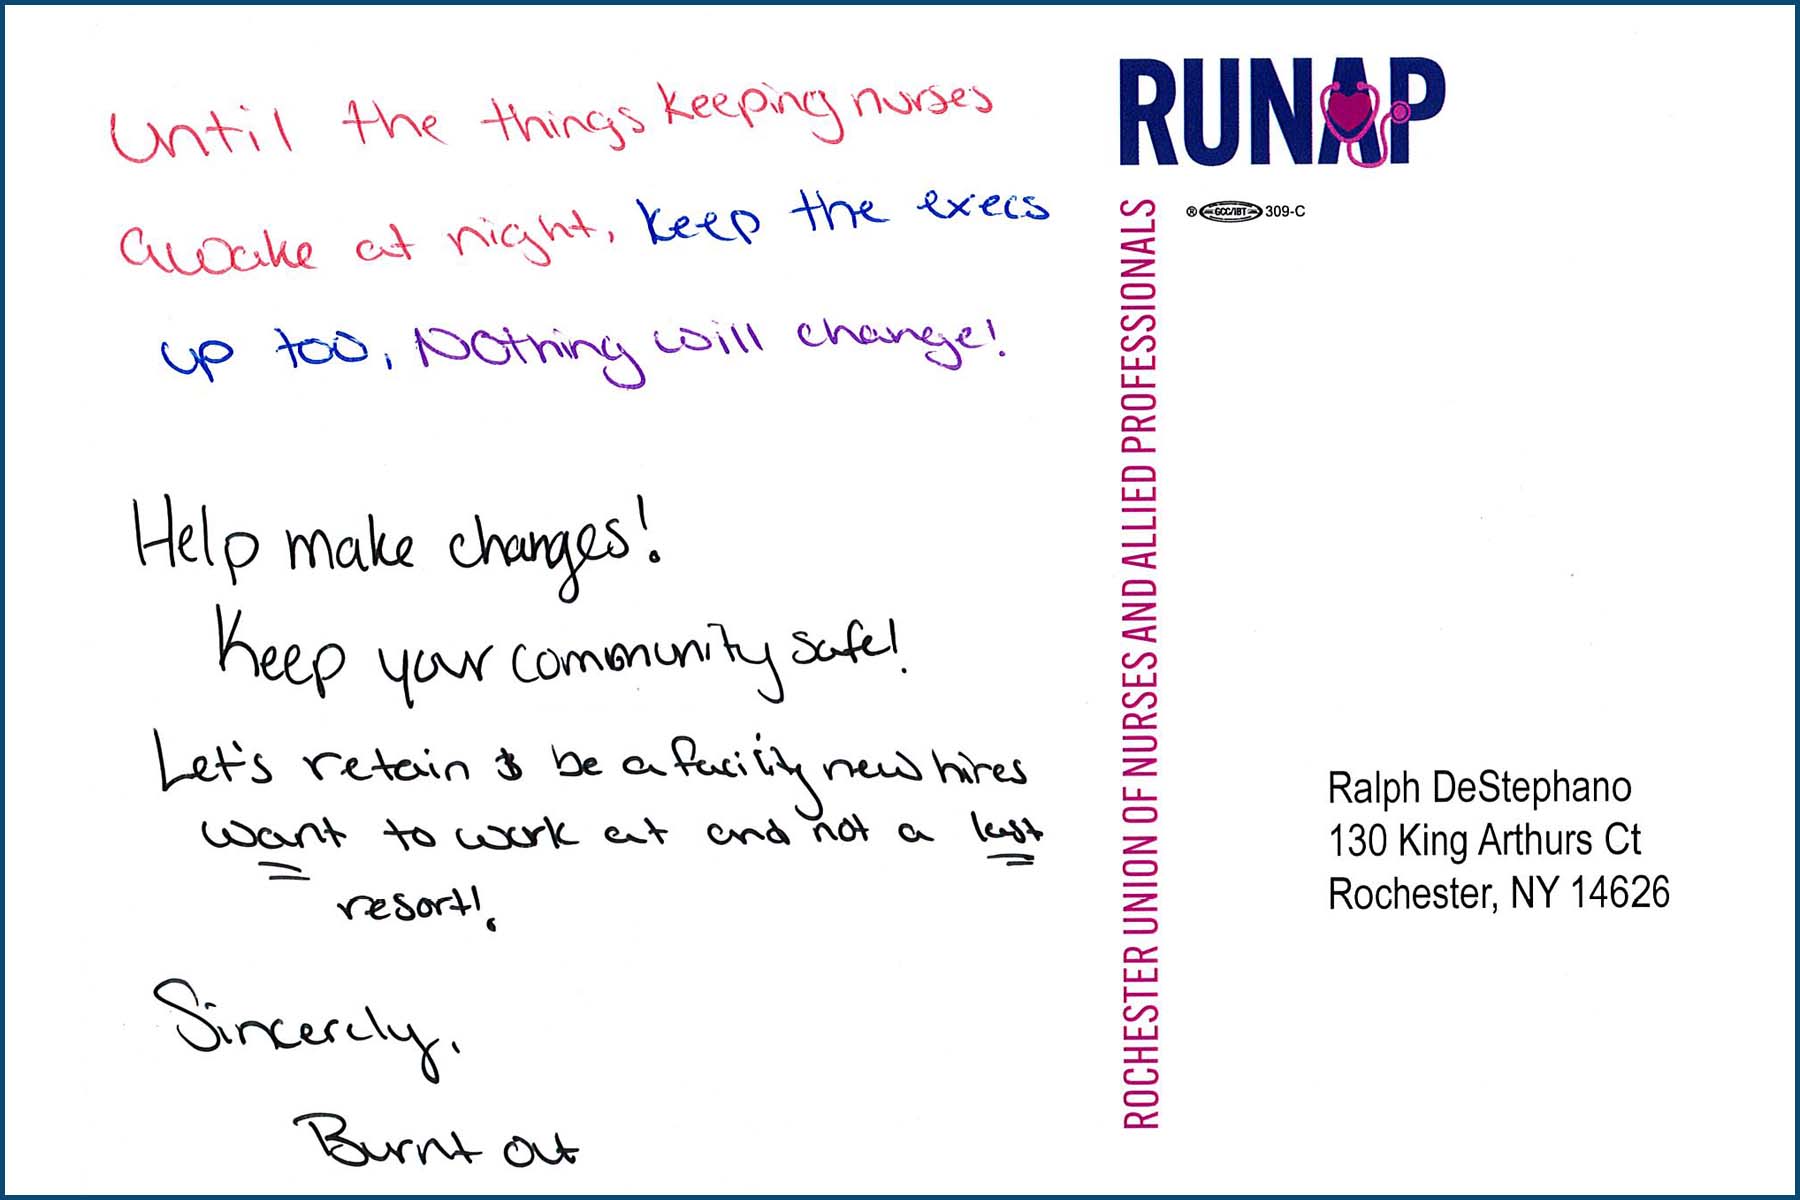 Until the things keeping nurses
awake at night, keep the execs
up too, Nothing will change!
Help make changes!
Keep your community safe!
Let's retain & be a facility new hires
want to work at and not a last
resort!
Sincerely,
Burnt out
RUNAP
® GCC/IBT 309-C
ROCHESTER UNION OF NURSES AND ALLIED PROFESSIONALS
Ralph DeStephano
130 King Arthurs Ct
Rochester, NY 14626